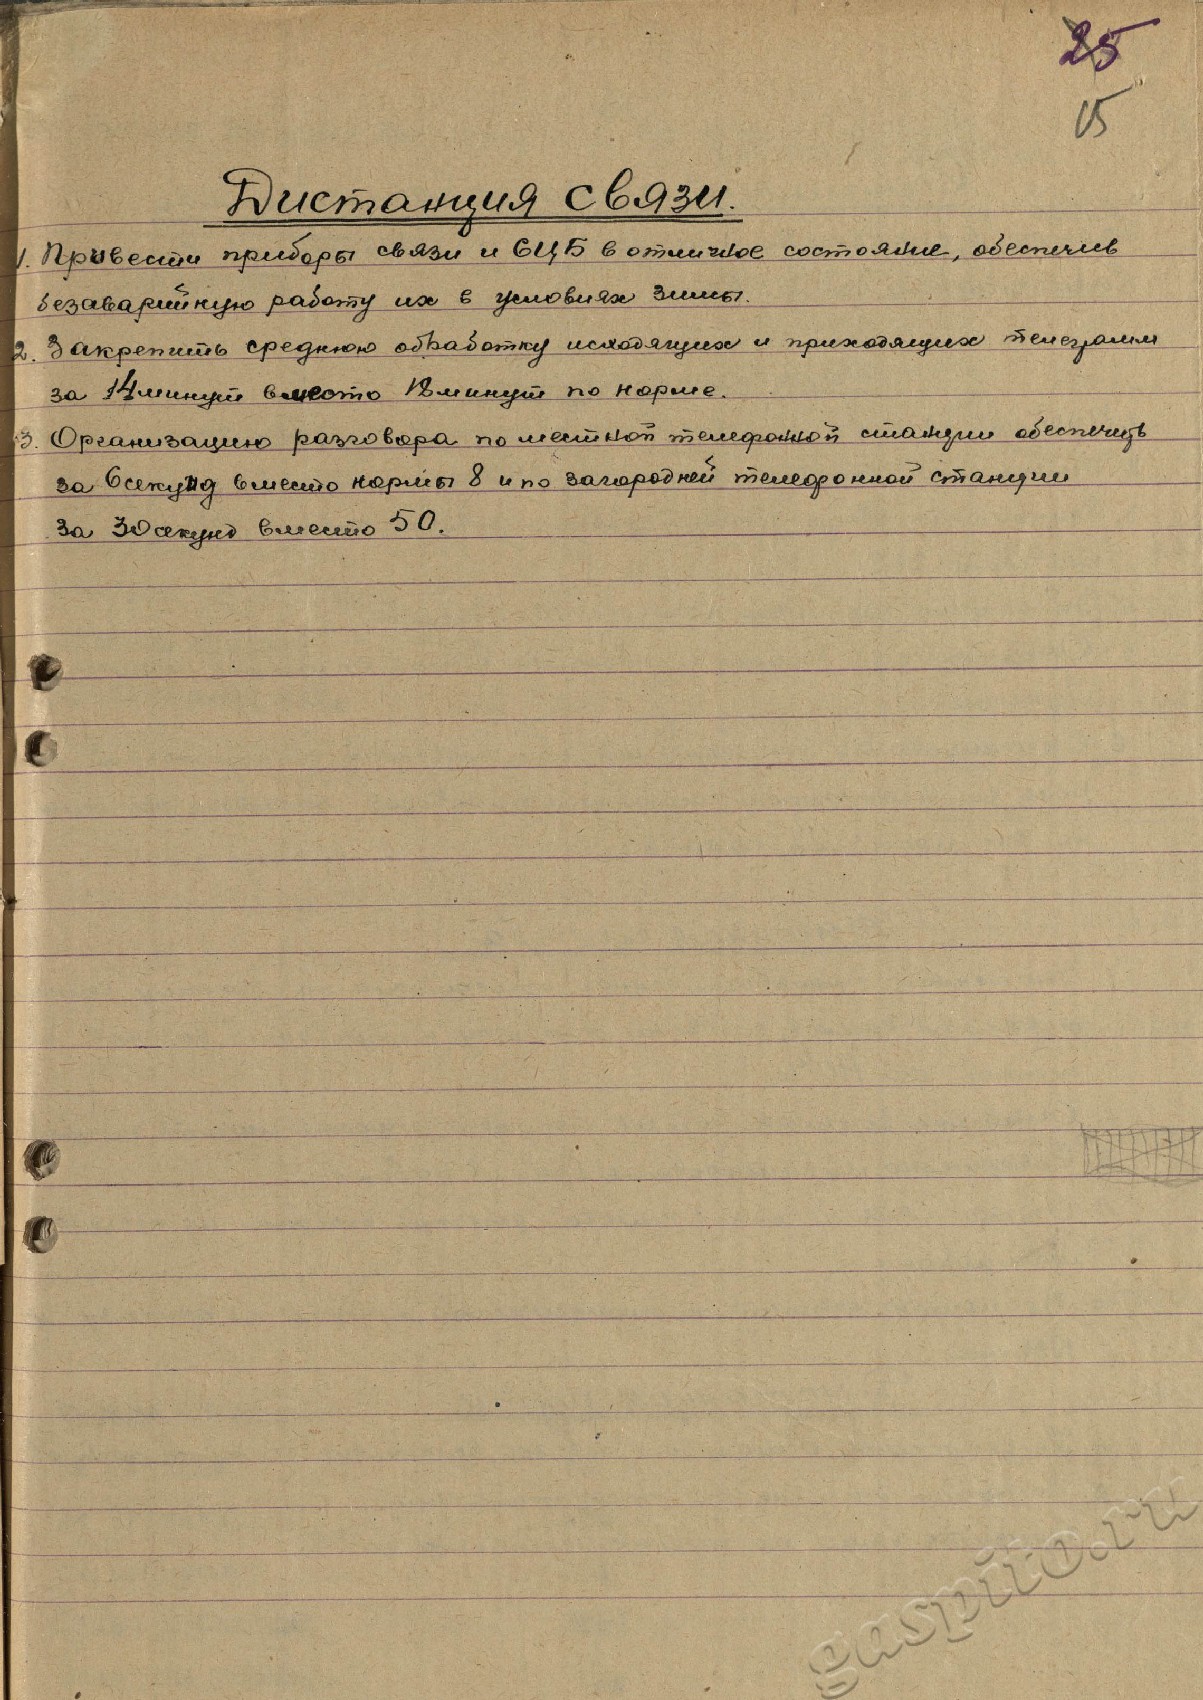 25
15
Дистанция связи.
1. Привести приборы связи и СЦБ в отличное состояние, обеспечив
безаварийную работу их в условиях зимы.
2. Закрепить среднюю обработку исходящих и приходящих телеграмм
за 14 минут вместо 18 минут по норме.
3. Организацию разговора по местной телефонной станции обеспечить
за 6 секунд вместо нормы 8 и по загородней телефонной станции
за 30 секунд вместо 50.
gaspito.ru